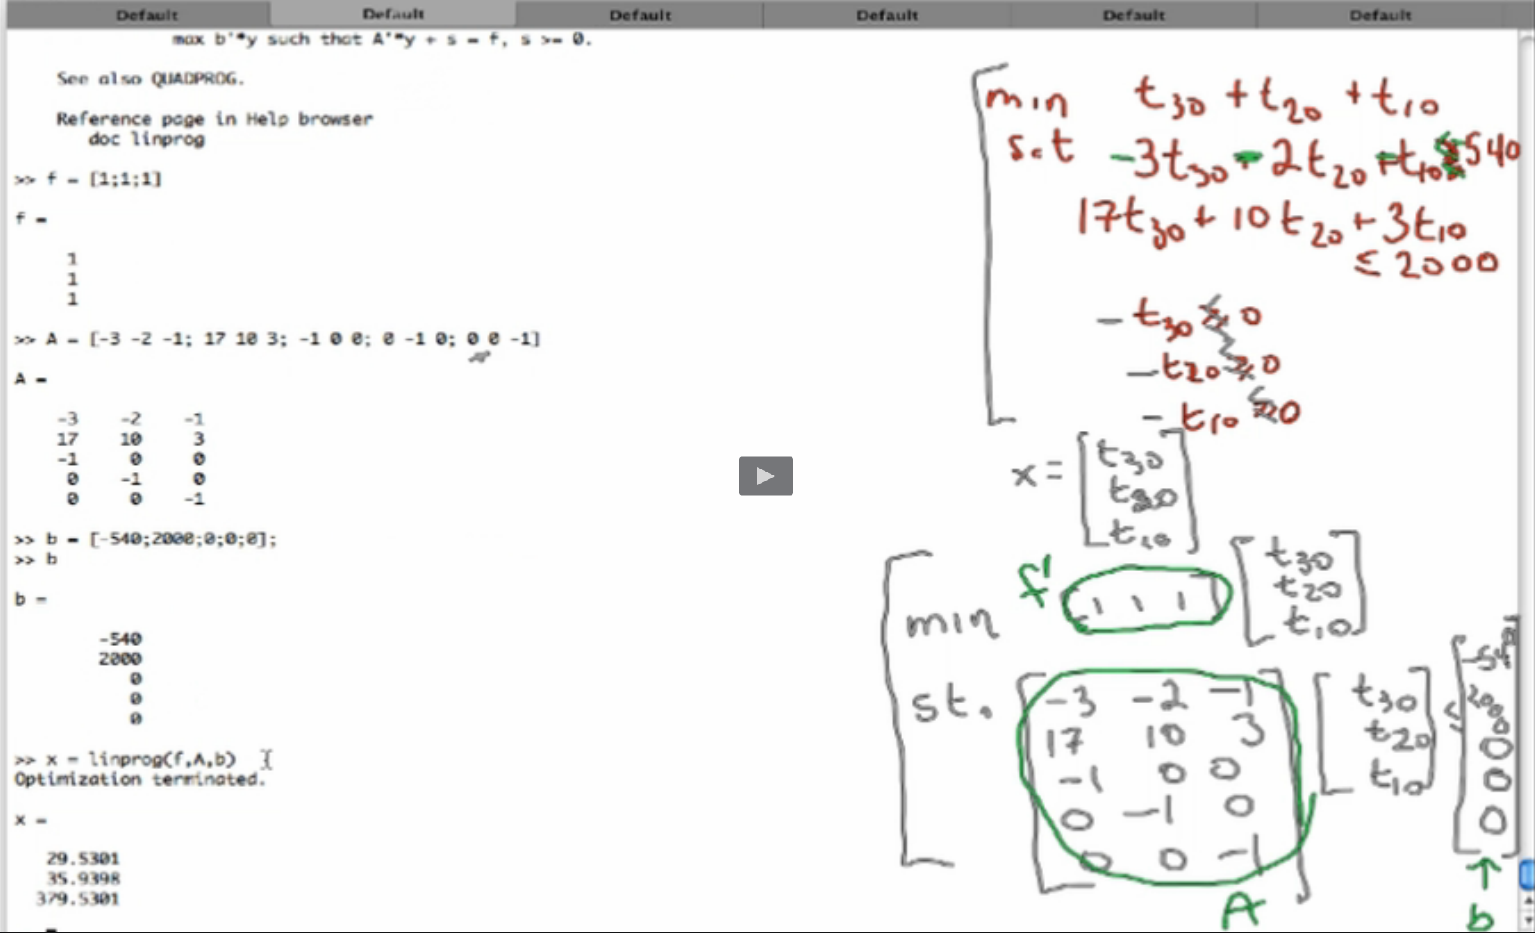 Default Default Default Default Default Default
max b'*y such that A'*y + s = f, s >= 0.
See also QUADPROG.
Reference page in Help browser
doc linprog
>> f = [1;1;1]
f =
1
1
1
>> A = [-3 -2 -1; 17 10 3; -1 0 0; 0 -1 0; 0 0 -1]
A =
-3 -2 -1
17 10 3
-1 0 0
0 -1 0
0 0 -1
>> b = [-540;2000;0;0;0];
>> b
b =
-540
2000
0
0
0
>> x = linprog(f,A,b)
Optimization terminated.
x =
29.5301
35.9398
379.5301
min t30 + t20 + t10
s.t -3t30 - 2t20 - t10 ≤ 540
17t30 + 10t20 + 3t10
≤ 2000
- t30 ≤ 0
- t20 ≤ 0
- t10 ≤ 0
x = [t30
t20
t10]
min f' [1 1 1] [t30
t20
t10]
st. [-3 -2 -1
17 10 3
-1 0 0
0 -1 0
0 0 -1]
A
[t30
t20
t10]
≤ [-540
2000
0
0
0]
b